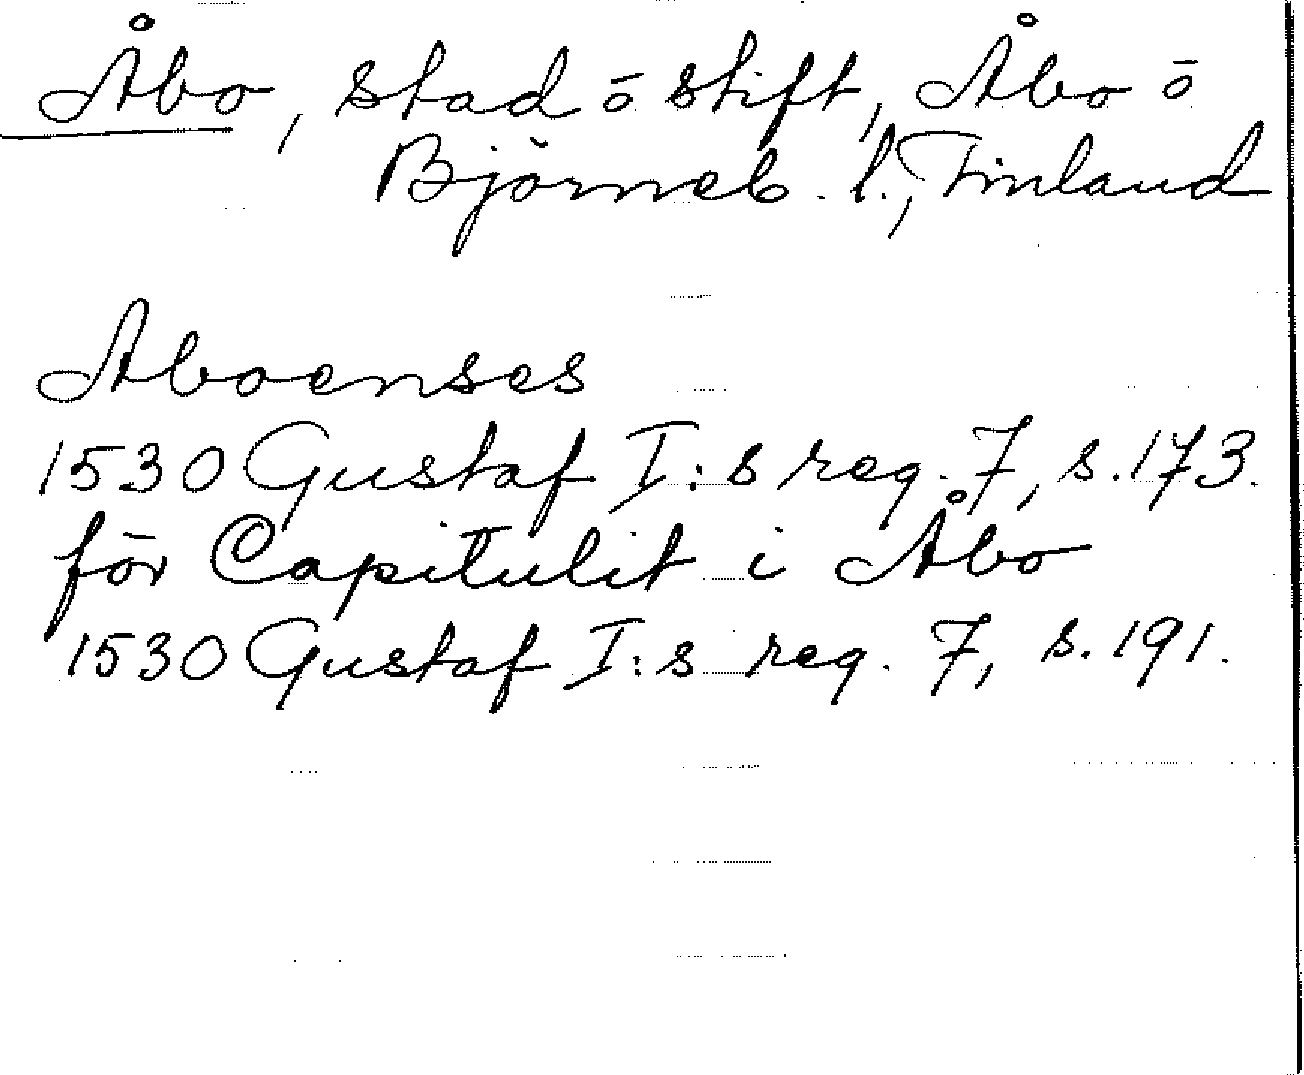 Åbo, stad ō stift, Åbo ō
Björneb. l., Finland
Aboenses
1530 Gustaf I:s reg. 7, s. 173.
för Capitulit i Åbo
1530 Gustaf I:s reg. 7, s. 191.